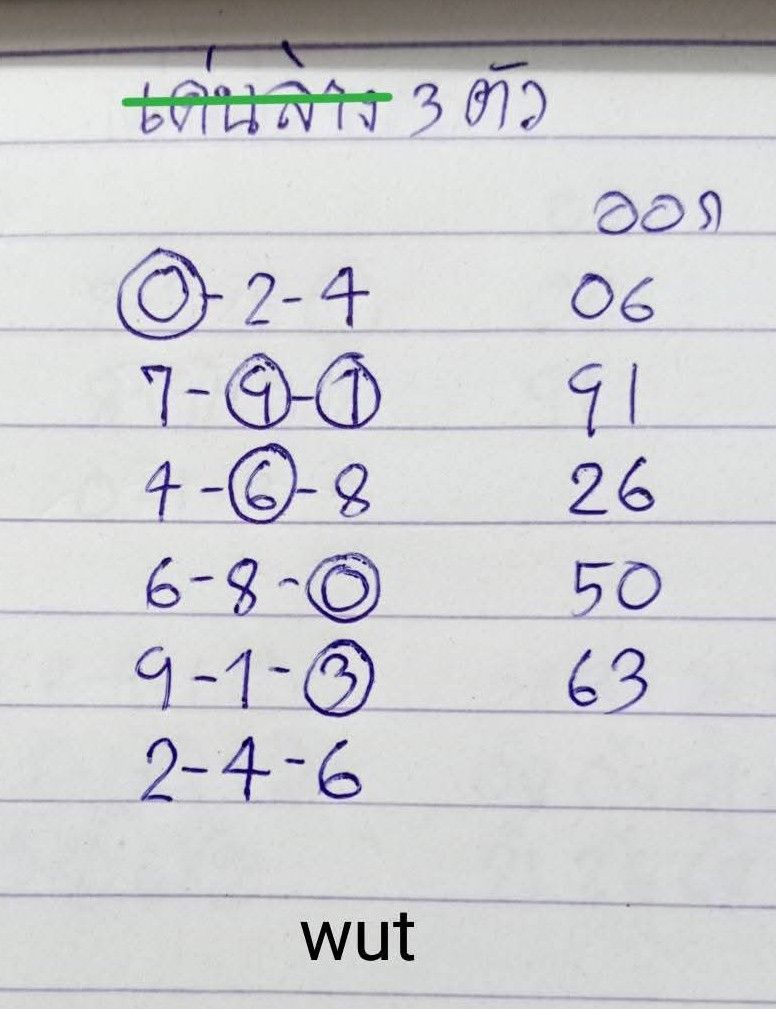 เด่นล่าง 3 ตัว
ออก
0-2-4 06
7-9-1 91
4-6-8 26
6-8-0 50
9-1-3 63
2-4-6
wut